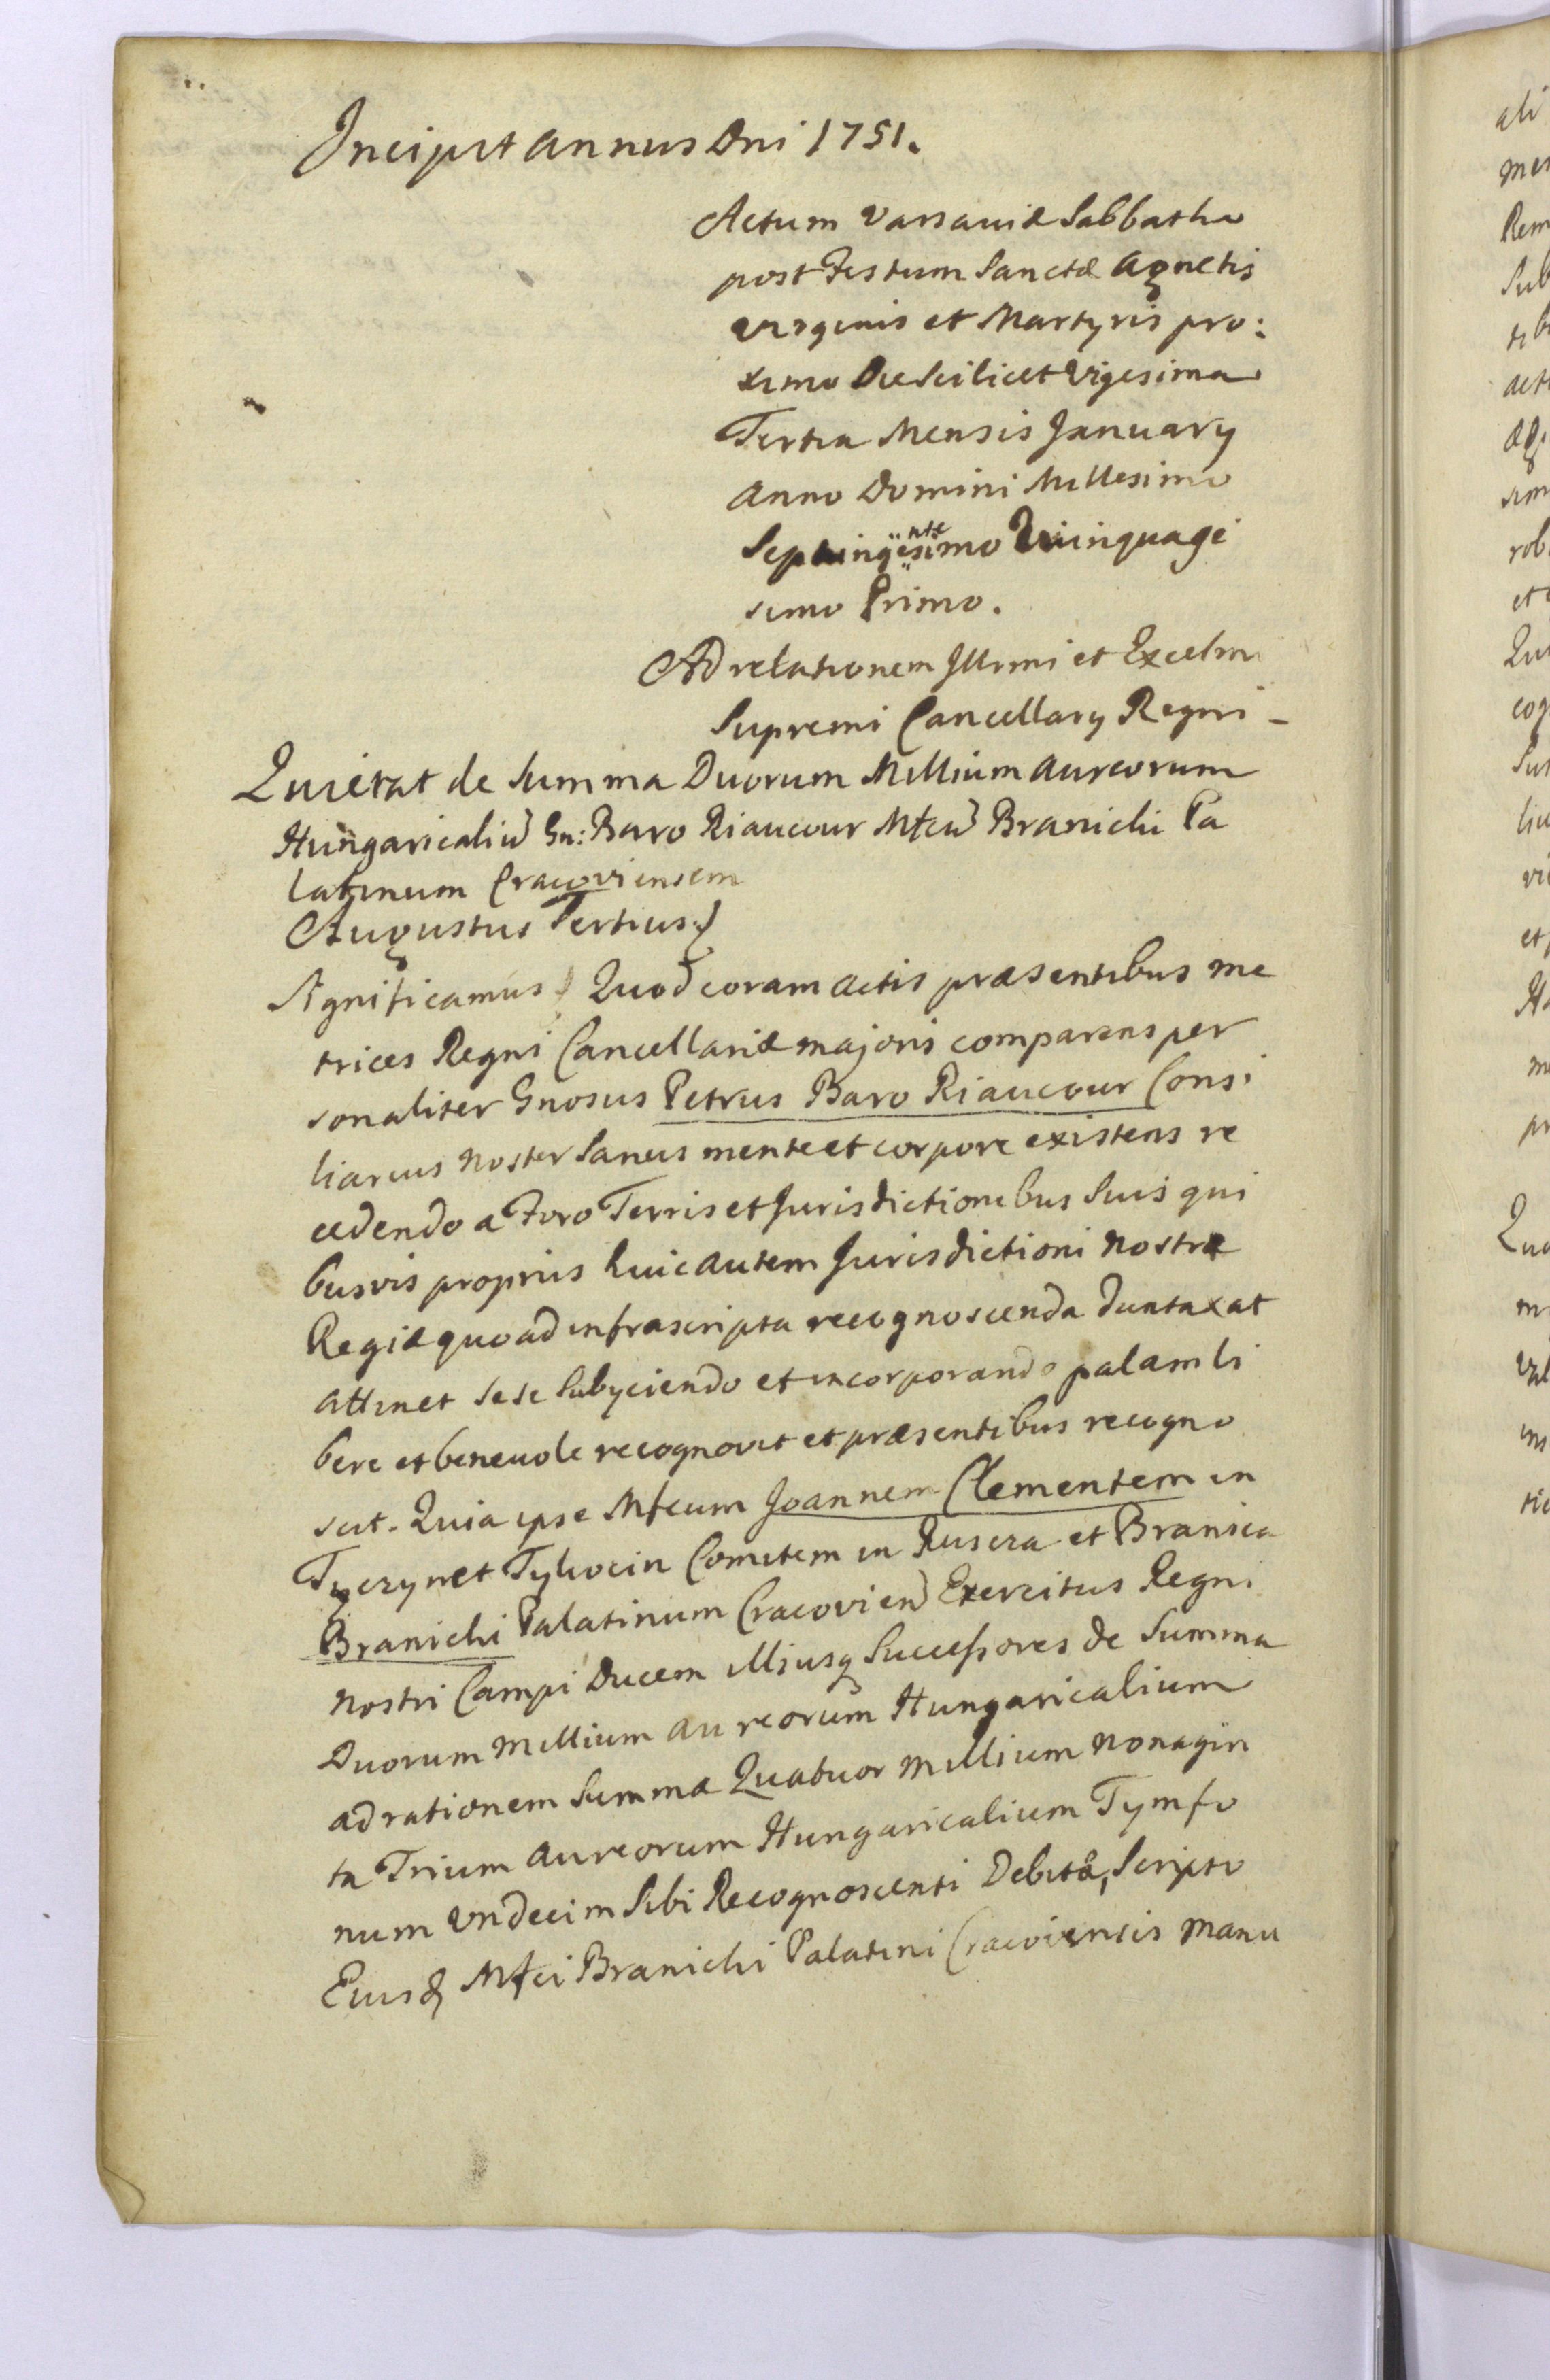 Incipit annus Dni 1751.
Actum Varsaviæ Sabbatho
post Festum Sanctæ Agnetis
Virginis et Martyris pro:
ximo Die Scilicet Vigesima
Tertia Mensis January
Anno Domini Millesimo
Septingentesimo Quinquage
simo Primo.
Ad relationem Illrmi et Excelmi
Supremi Cancellary Regni -
Quietat de Summa Duorum Millium Aureorum
Hungaricaliu Gn: Baro Riaucour Mfcu Branicki Pa
latinum Cracoviensem
Augustus Tertius.
Significamus Quod coram actis præsentibus me
trices Regni Cancellariæ majoris comparens per
sonaliter Gnosus Petrus Baro Riaucour Consi
liarius noster Sanus mente et corpore existens re
cedendo a Foro Terris et Jurisdictionibus Suis qui
busvis proprijs huic autem Jurisdictioni nostræ
Regiæ quoad infrascripta recognoscenda duntaxat
attinet sese Subyciendo et incorporando palam li
bere et benevole recognovit et præsentibus recogno
scit. Quia ipse Mfcum Joannem Clementem in
Tyczyn et Tykocin Comitem in Ruscza et Branica
Branicki Palatinum Cracovien Exercitus Regni
nostri Campi Ducem illiusq Successores de Summa
Duorum Millium aureorum Hungaricalium
ad rationem Summæ Quatuor Millium nonagin
ta Trium aureorum Hungaricalium Tymfo
num Undecim Sibi Recognoscenti Debitâ, Scripto
Eiusd Mfci Branicki Palatini Cracoviensis manu
ali
Rem
Sub
rob
cog
Sus
liu
et
Qua